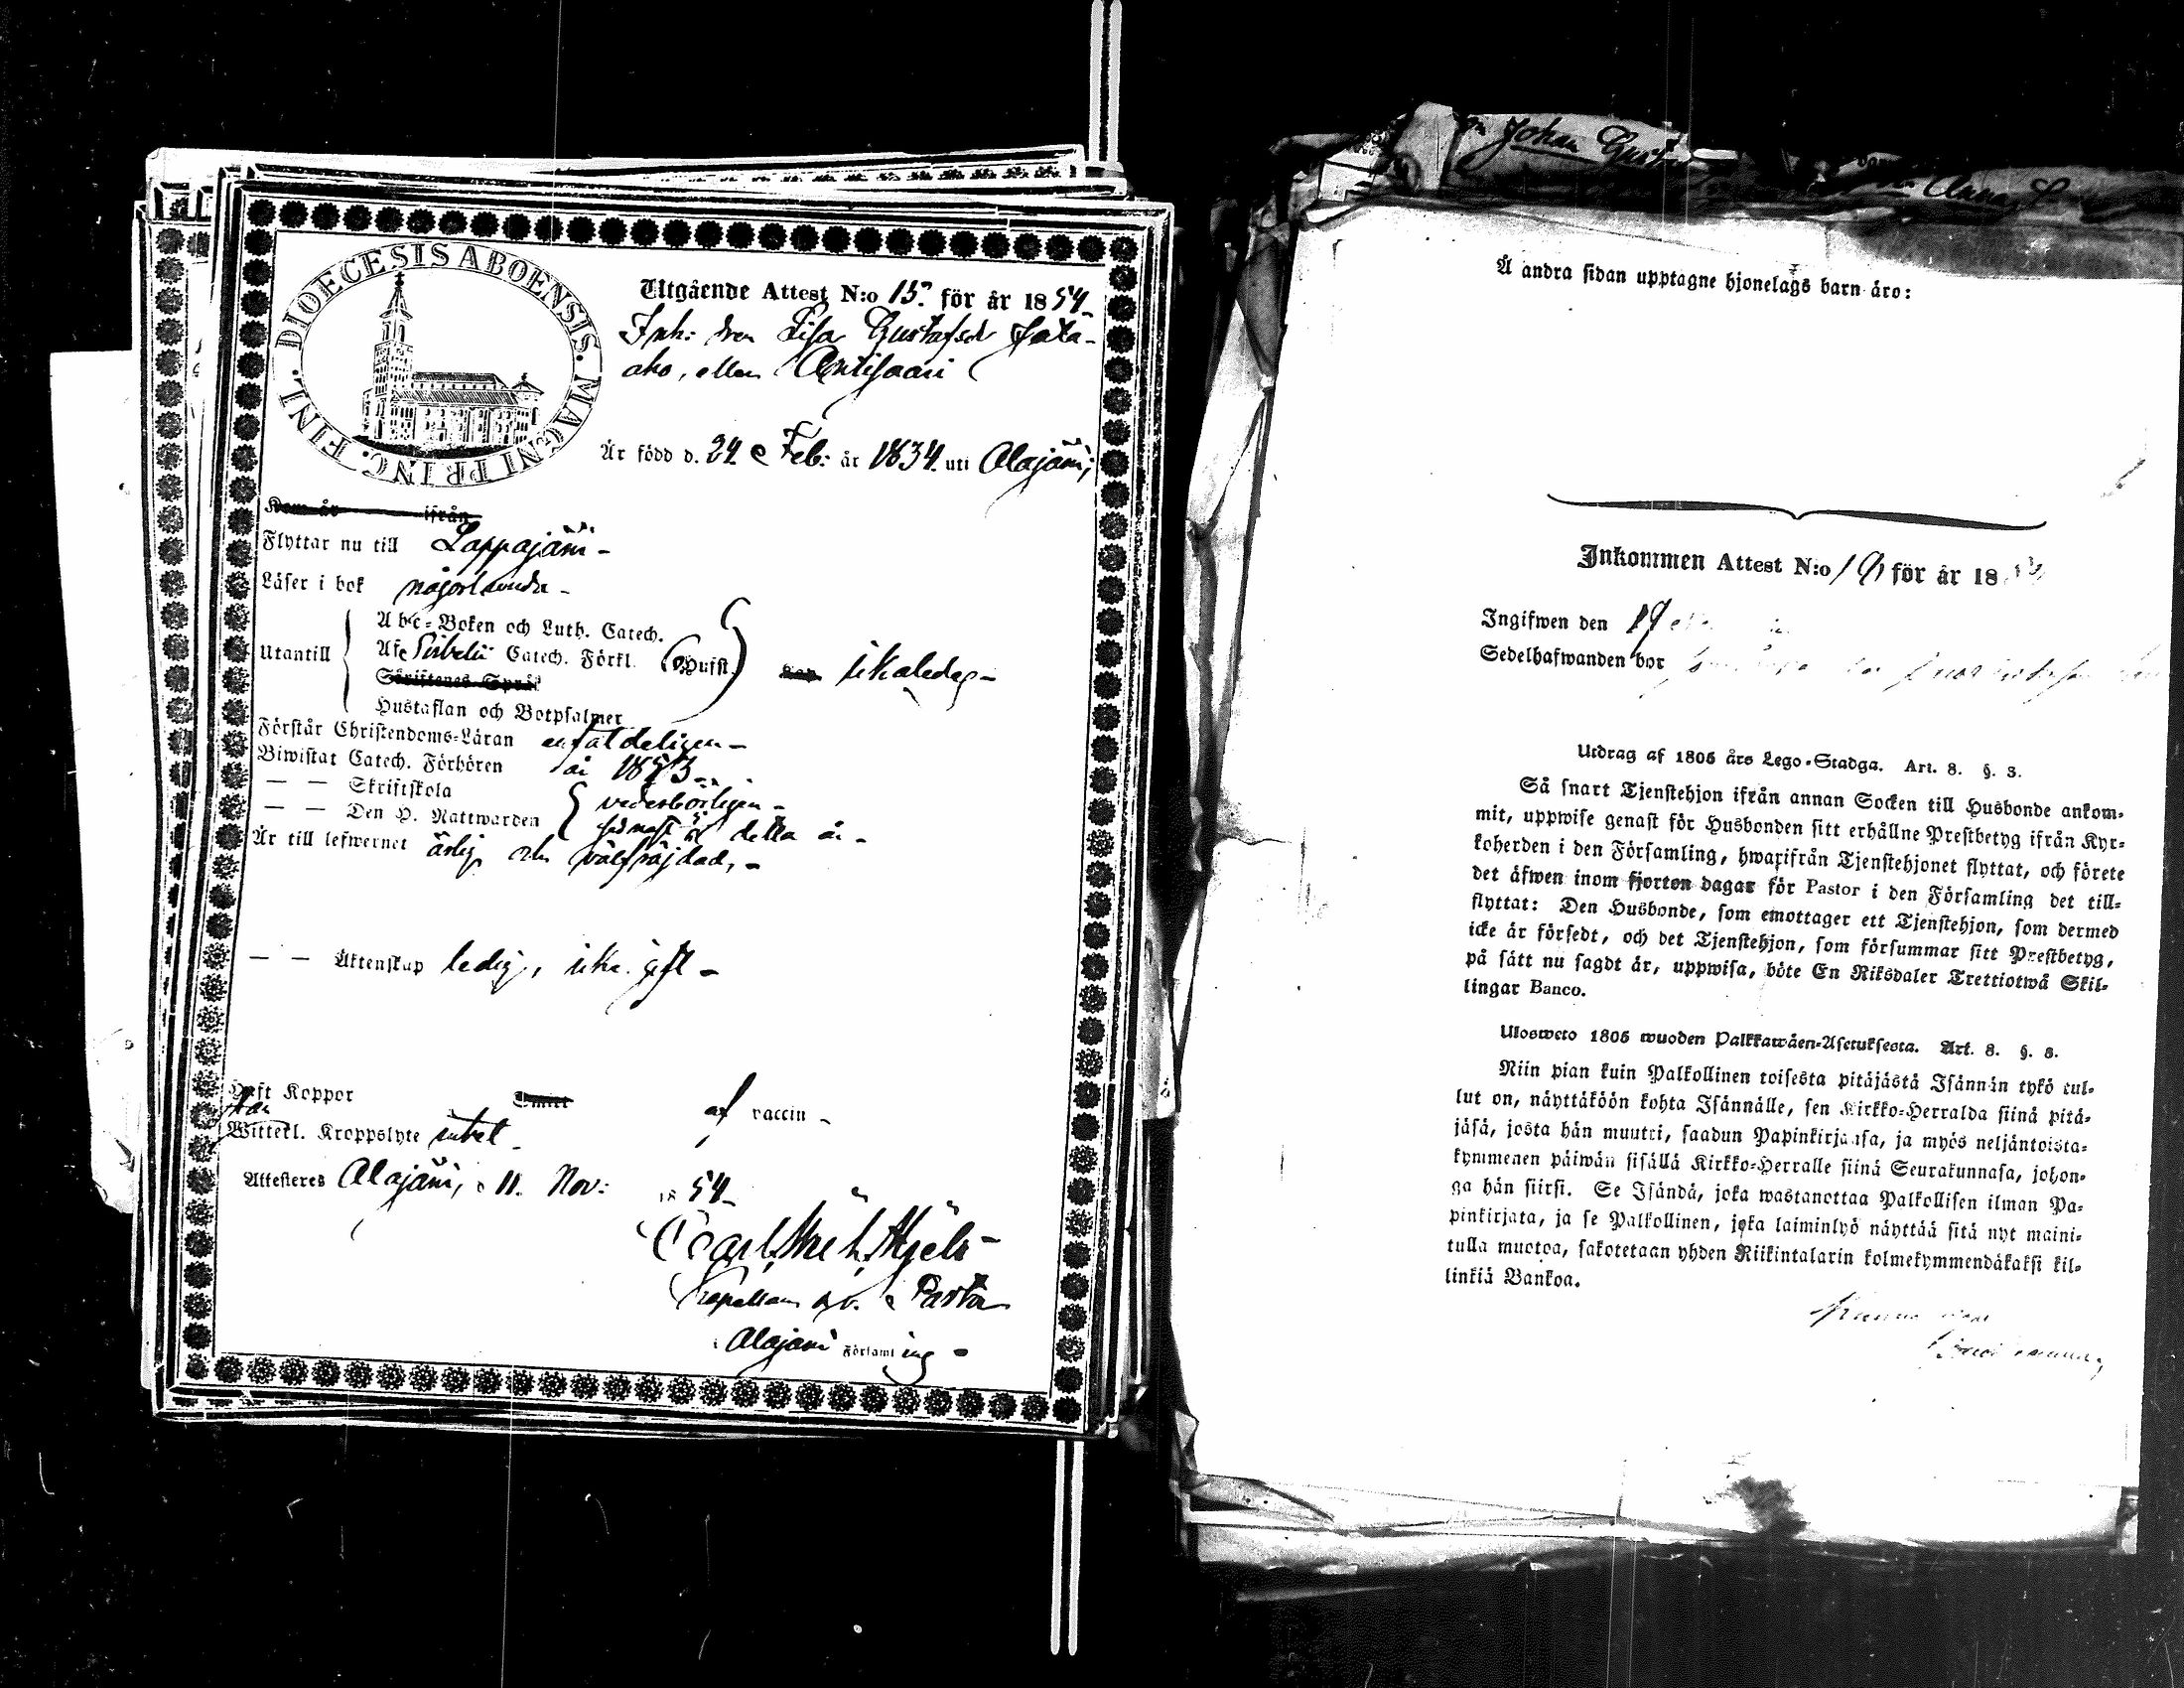 DIOECESIS ABOENSIS. MAGNI PRINC. FINL.
Utgående Attest N:o 15. för år 1854.
Inh: dren Lisa Gustafsdr Jata-
aho, eller Antisaari
Är född d. 24 Feb: år 1834. uti Alajärvi,
Kom år ifrån
Flyttar nu till Lappajärvi -
Läser i bok någorlunda -
Utantill
Abc-Boken och Luth. Catech.
Catech. Förkl.
Skriftenes Språk
Hustaflan och Botpsalmer
Förstår Christendoms-Läran enfaldeligen -
Biwistat Catech. Förhören år 1853 -
— — Skriftskola vederbörligen -
— — Den H. Nattwarden sednast detta år -
Är till lefwernet ärlig och välfräjdad, -
— — Äktenskap ledig, icke gift -
Haft Koppor af vaccin -
Witterl. Kroppslyte intet -
Attesteres Alajärvi, 11. Nov: 1854 -
Pastor
Alajärvi Församling -
Johan Gustaf
Anna
Å andra sidan upptagne hjonelags barn äro:
Inkommen Attest N:o för år 18
Ingifwen den 19
Sedelhafwanden bor
Utdrag af 1805 års Lego-Stadga. Art. 8. §. 3.
Så snart Tjenstehjon ifrån annan Socken till Husbonde ankom-
mit, uppwise genast för Husbonden sitt erhållne Prestbetyg ifrån Kyr-
koherden i den Församling, hwarifrån Tjenstehjonet flyttat, och förete
det äfwen inom fjorton dagar för Pastor i den Församling det till-
flyttat: Den Husbonde, som emottager ett Tjenstehjon, som dermed
icke är försedt, och det Tjenstehjon, som försummar sitt Prestbetyg,
på sätt nu sagdt är, uppwisa, böte En Riksdaler Trettiotwå Skil-
lingar Banco.
Ulosweto 1805 wuoden Palkkawäen-Asetuksesta. Art. 8. §. 3.
Niin pian kuin Palkollinen toisesta pitäjästä Isännän tykö tul-
lut on, näyttäköön kohta Isännälle, sen Kirkko-Herralda siinä pitä-
jäsä, josta hän muutti, saadun Papinkirjansa, ja myös neljäntoista-
kymmenen päiwän sisällä Kirkko-Herralle siinä Seurakunnasa, johon-
ga hän siirsi. Se Isändä, joka wastanottaa Palkollisen ilman Pa-
pinkirjata, ja se Palkollinen, joka laiminlyö näyttää sitä nyt maini-
tulla muotoa, sakotetaan yhden Riikintalarin kolmekymmendäkaksi kil-
linkiä Bankoa.